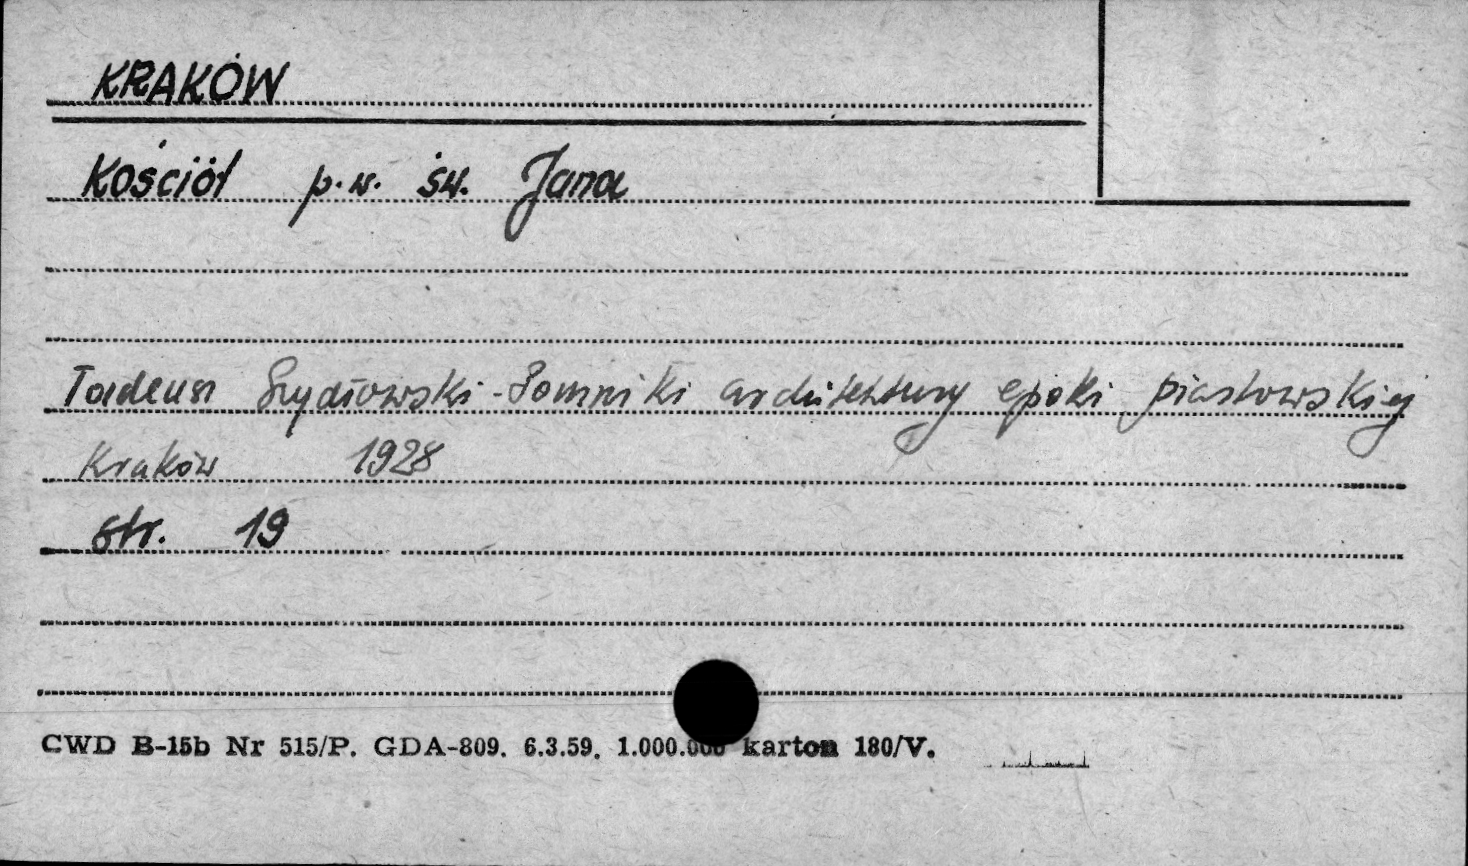 KRAKÓW
Kościół p.w. św. Jana
Tadeusz Szydłowski - Pomniki architektury epoki piastowskiej
Kraków 1928
str. 19
CWD B-15b Nr 515/P. GDA-809. 6.3.59. 1.000.000 karton 180/V.